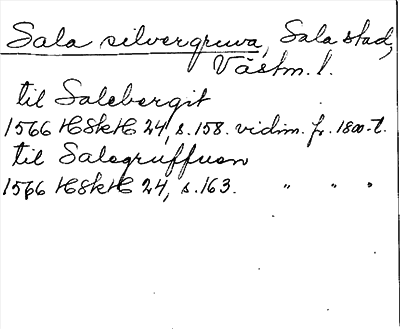 Sala silvergruva, Sala stad,
Västm. l.
til Salebergit
1566 HSkH 24, s. 158. vidim. fr. 1800-t.
til Salegruffuon
1566 HSkH 24, s. 163. " " "